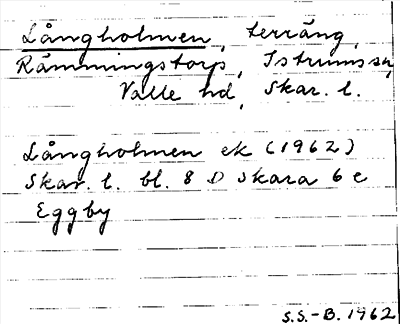 Långholmen, terräng,
Rämmingstorp, Istrums sn,
Valle hd, Skar. l.
Långholmen ek (1962)
Skar. l. bl. 8 D Skara 6 e
Eggby
S.S.-B. 1962